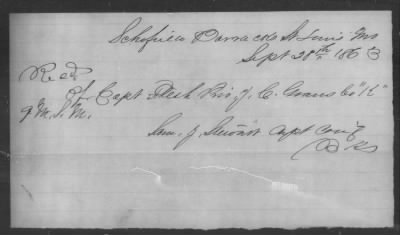 Schofield Barracks St Louis Mo
Sept 28th 1863
Recd
of Capt Flesh Pris. J. C. Evans Co "K"
9 M. S. M.
Sam. J. Capt Comg
Bks